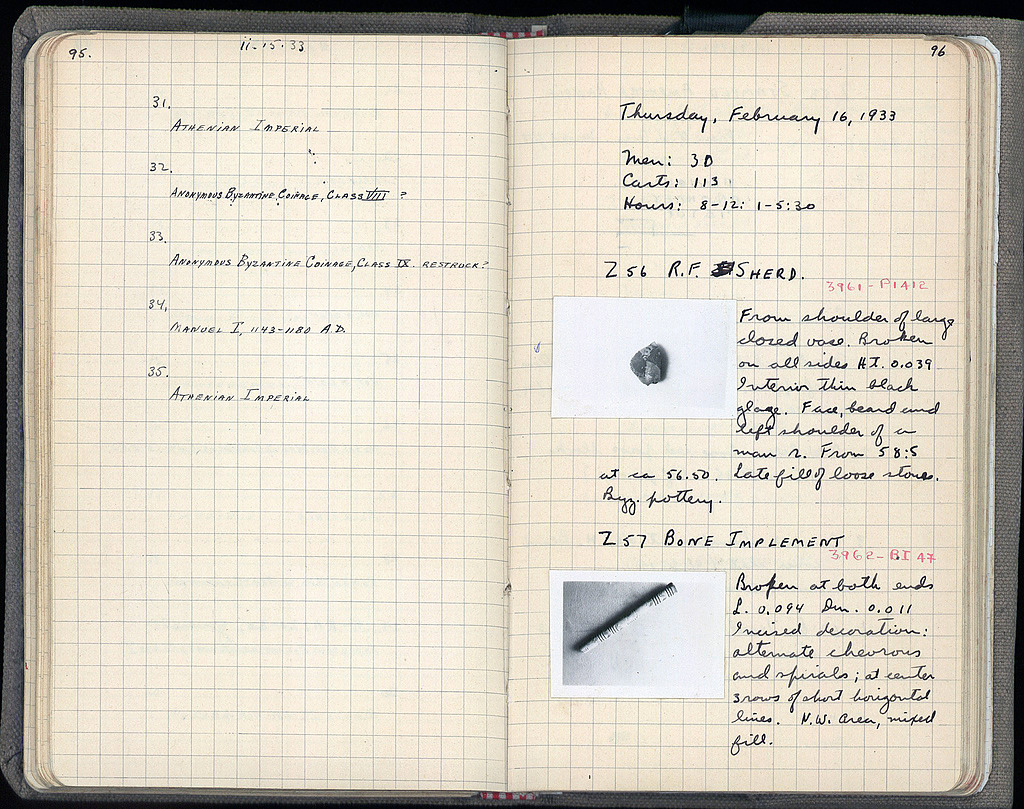 95.
ii-15-33
31.
ATHENIAN IMPERIAL
32.
ANONYMOUS BYZANTINE COINAGE, CLASS VIII ?
33.
ANONYMOUS BYZANTINE COINAGE, CLASS IX. RESTRUCK?
34.
MANUEL I, 1143-1180 A.D.
35.
ATHENIAN IMPERIAL
96
Thursday, February 16, 1933
Men: 30
Carts: 113
Hours: 8-12: 1-5:30
Z 56 R.F. SHERD.
3961-P1412
From shoulder of large
closed vase. Broken
on all sides HT. 0.039
Interior thin black
glaze. Face, beard and
left shoulder of a
man r. From 58:5
at ca 56.50. Late fill of loose stones.
Byz. pottery.
Z 57 BONE IMPLEMENT
3962-BI 47
Broken at both ends
L. 0.094 Dm. 0.011
Incised decoration:
alternate chevrons
and spirals; at center
3 rows of short horizontal
lines. N.W. area, mixed
fill.